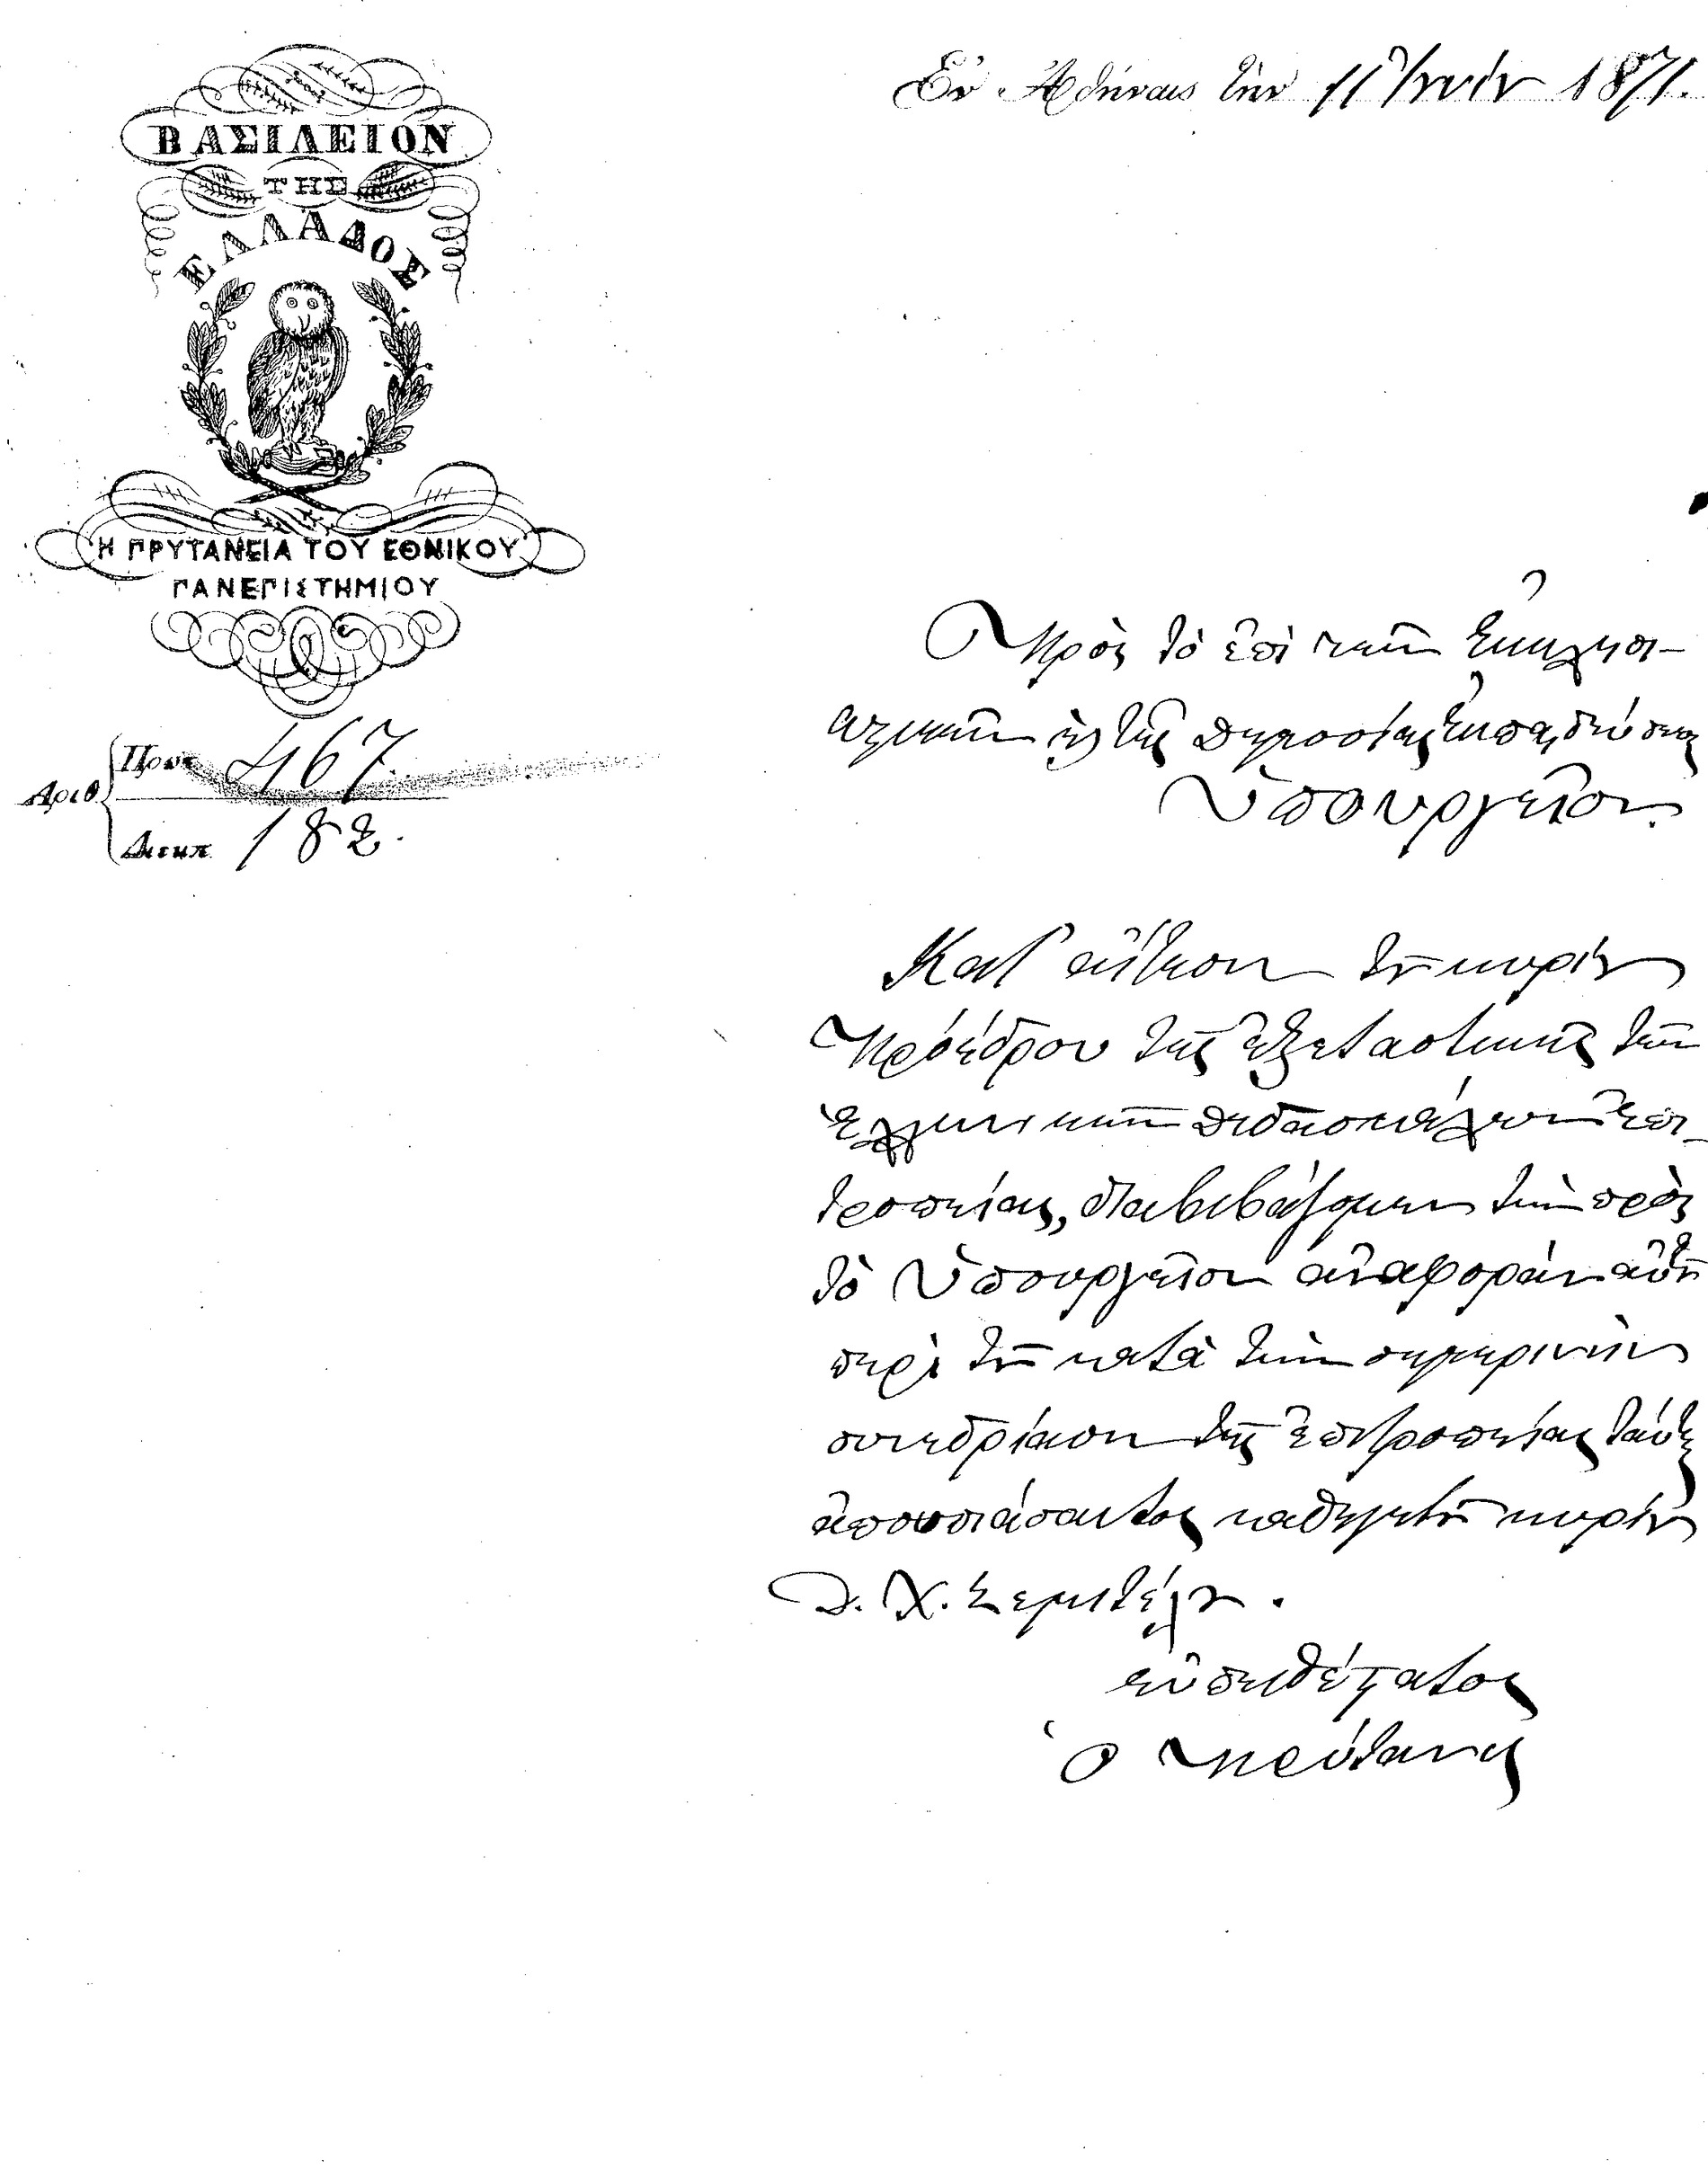 Ἐν Ἀθήναις τὴν 11 Ἰουνίου 1871.
ΒΑΣΙΛΕΙΟΝ
ΤΗΣ
ΕΛΛΑΔΟΣ
Η ΠΡΥΤΑΝΕΙΑ ΤΟΥ ΕΘΝΙΚΟΥ
ΠΑΝΕΠΙΣΤΗΜΙΟΥ
Ἀριθ. Πρωτ. 467.
Διεκπ. 182.
Πρὸς τὸ ἐπὶ τῶν Ἐκκλησι-
αστικῶν καὶ τῆς Δημοσίας Ἐκπαιδεύσεως
Ὑπουργεῖον.
Κατ' αἴτησιν τοῦ κυρίου
Προέδρου τῆς ἐξεταστικῆς τῶν
ἑλληνικῶν διδασκάλων ἐπι-
τροπείας, διαβιβάζομεν τὴν πρὸς
τὸ Ὑπουργεῖον ἀναφορὰν αὐτοῦ
περὶ τοῦ κατὰ τὴν σημερινὴν
συνεδρίασιν τῆς ἐπιτροπείας ταύτης
ἀπουσιάσαντος καθηγητοῦ κυρίου
Δ. Χ. Σεμιτέλου.
εὐπειθέστατος
ὁ Πρύτανις